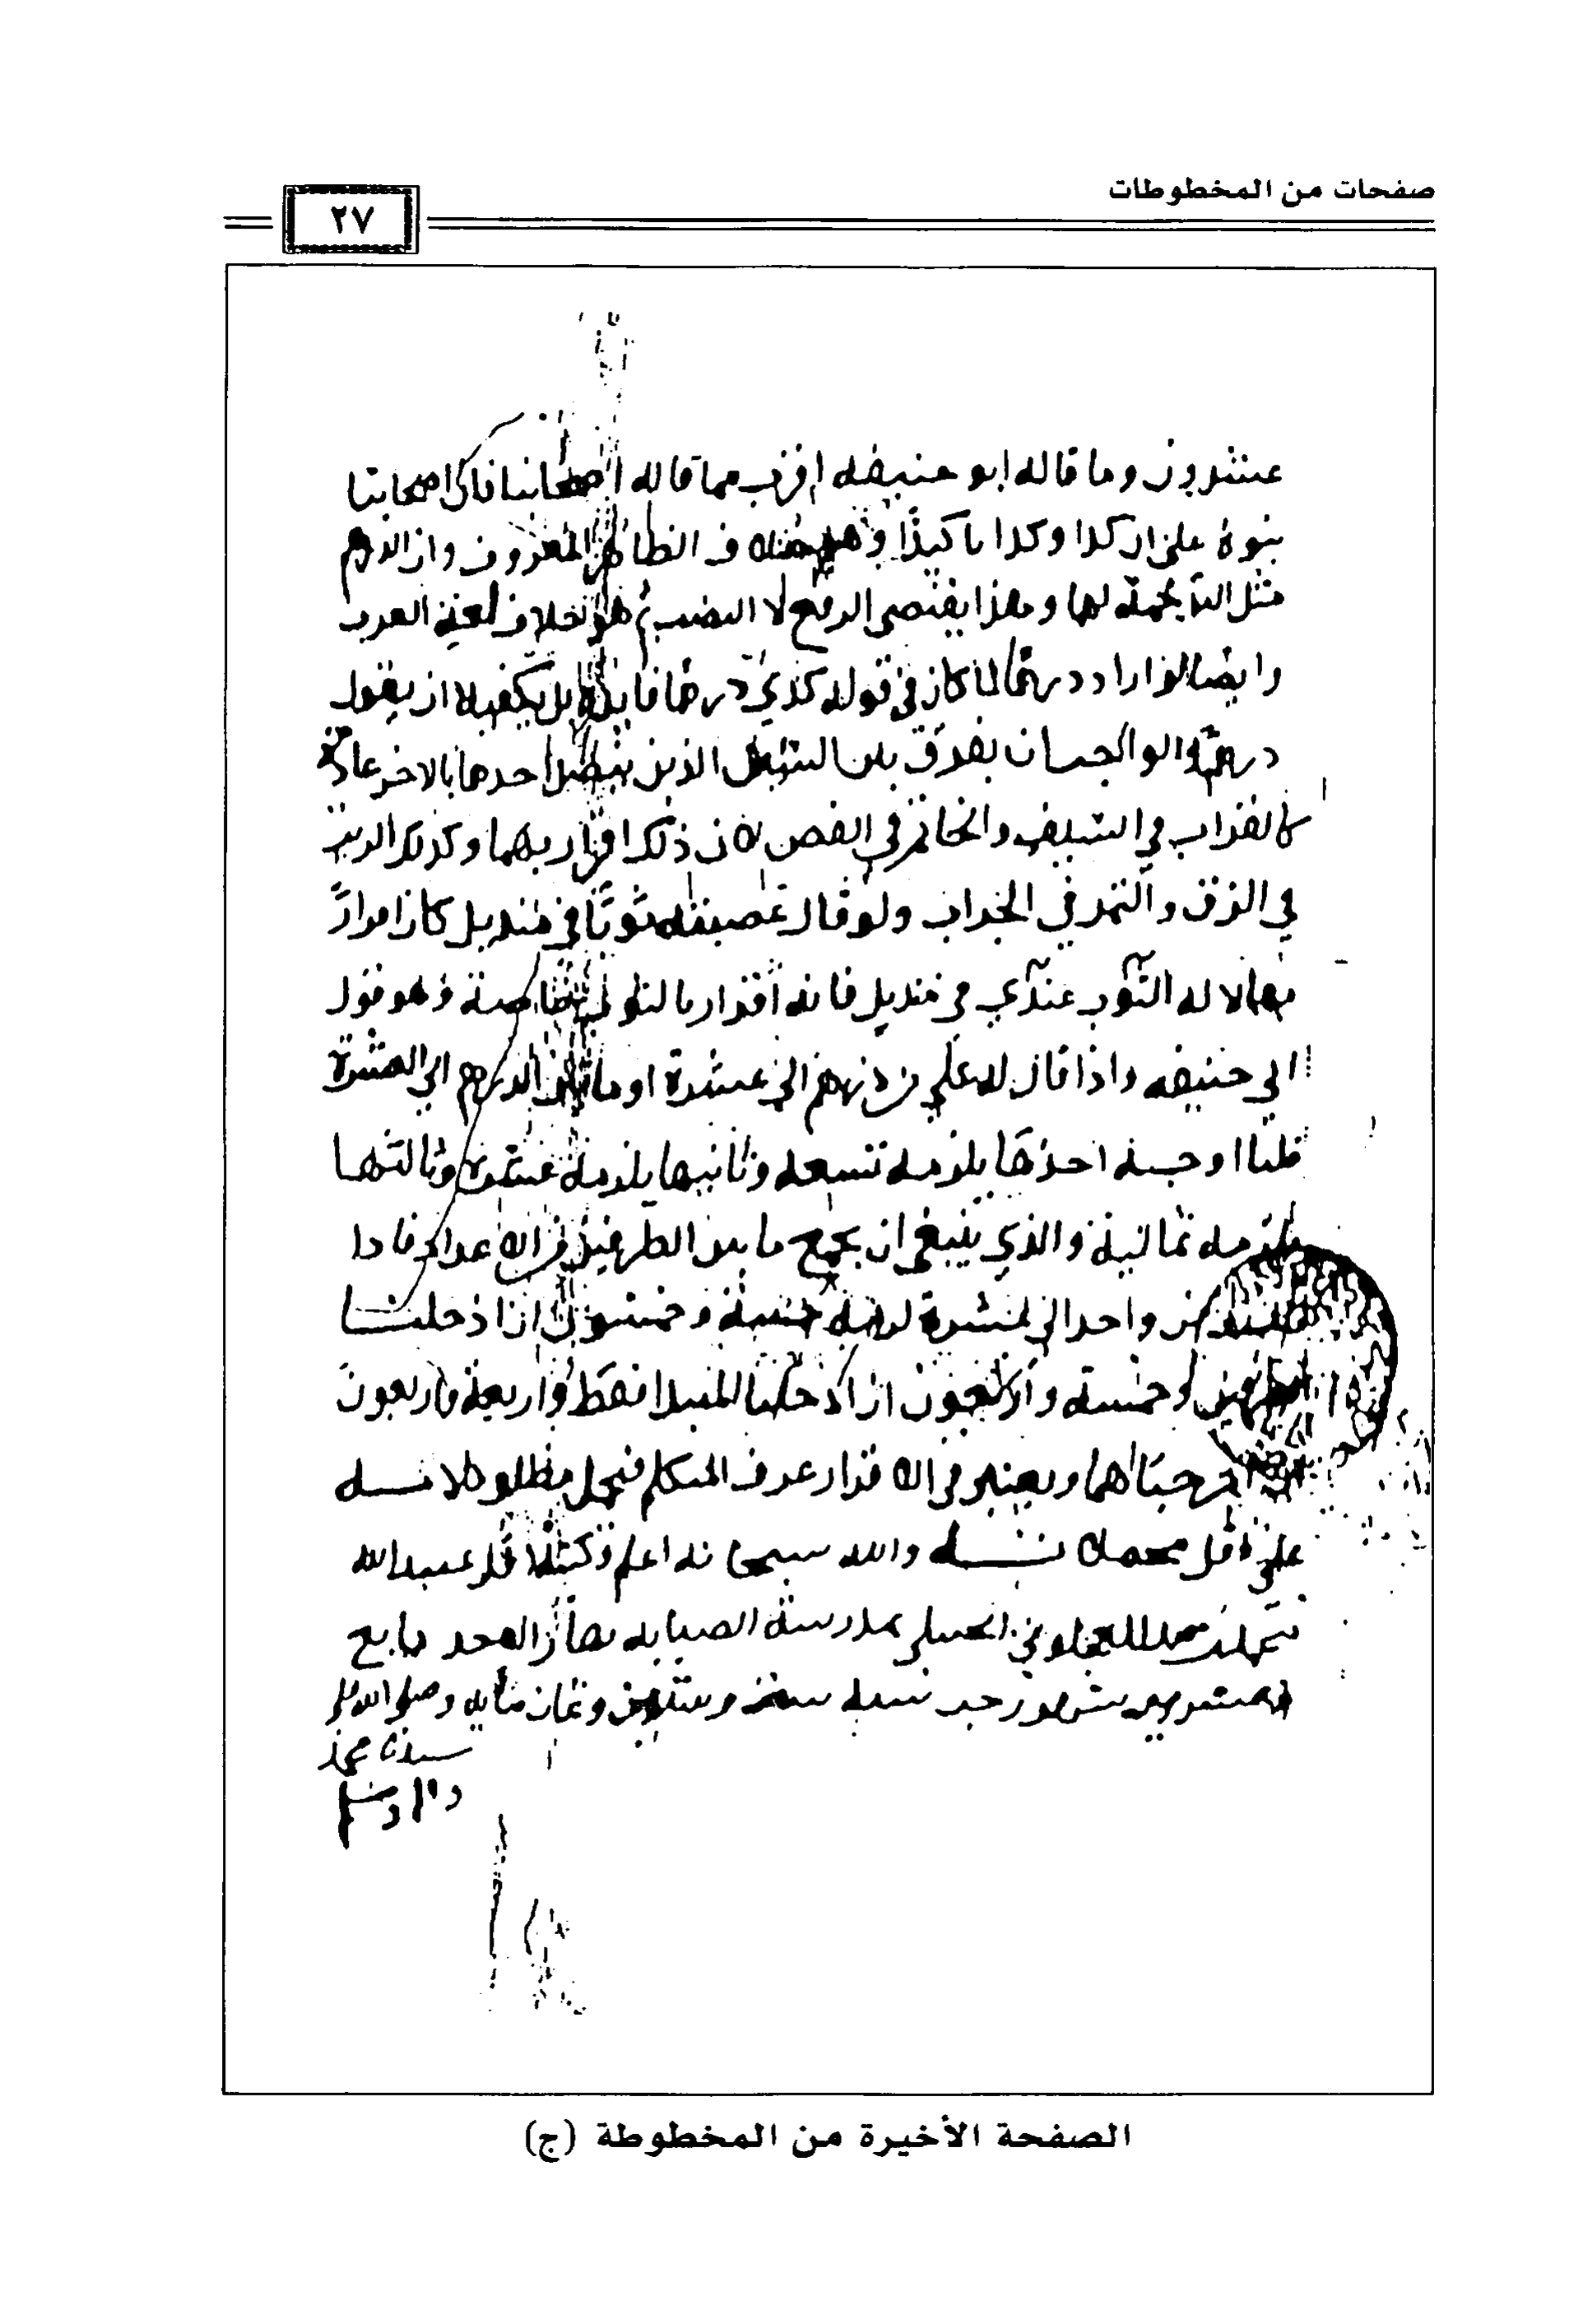 صفحات من المخطوطات
٢٧
عشرون وما قاله ابو حنيفه اقرب مما قاله اصحابنا فان اصحابنا
بنوه على ان كذا وكذا تاكيدا و في الظاهر المعروف وان الدرهم
مثل لها وهذا يقتضي الرفع لا النصب ثم هو خلاف لغة العرب
وايضا لو اراد درهما لما كان في قوله كذي درهما فايده بل يكفيه ان يقول
درهم والواجب ان يفرق بين الشيئين الذين يتصل احدهما بالاخر عادة
كالقراب في السيف والخاتم في الفص لان ذلك اقرار بهما وكذلك الزيت
في الزق والتمر في الجراب ولو قال غصبته ثوبا في منديل كان اقرارا
بهما لا له الثوب عندي في منديل فانه اقرار بالثوب خاصة وهو قول
ابي حنيفه واذا قال له علي من درهم الى عشرة او ما بين الدرهم الى العشرة
قلنا اوجه احدها يلزمه تسعه وثانيها يلزمه عشرة وثالثها
يلزمه ثمانية والذي ينبغي ان يجمع ما بين الطرفين من الاعداد فاذا
من واحد الى عشرة لزمه خمسة وخمسون ان ادخلنا
الطرفين وخمسة واربعون ان ادخلنا المبدا فقط واربعة واربعون
ان اخرجناهما ويعتبر في الاقرار عرف المتكلم فيحمل مطلق كلامه
على اقل محملاته والله سبحانه اعلم
بمدرسة نهار الاحد رابع
عشرين شهر رجب سنه وثمان مايه وصلى الله على
سيدنا محمد
واله وسلم
الصفحة الأخيرة من المخطوطة (ج)